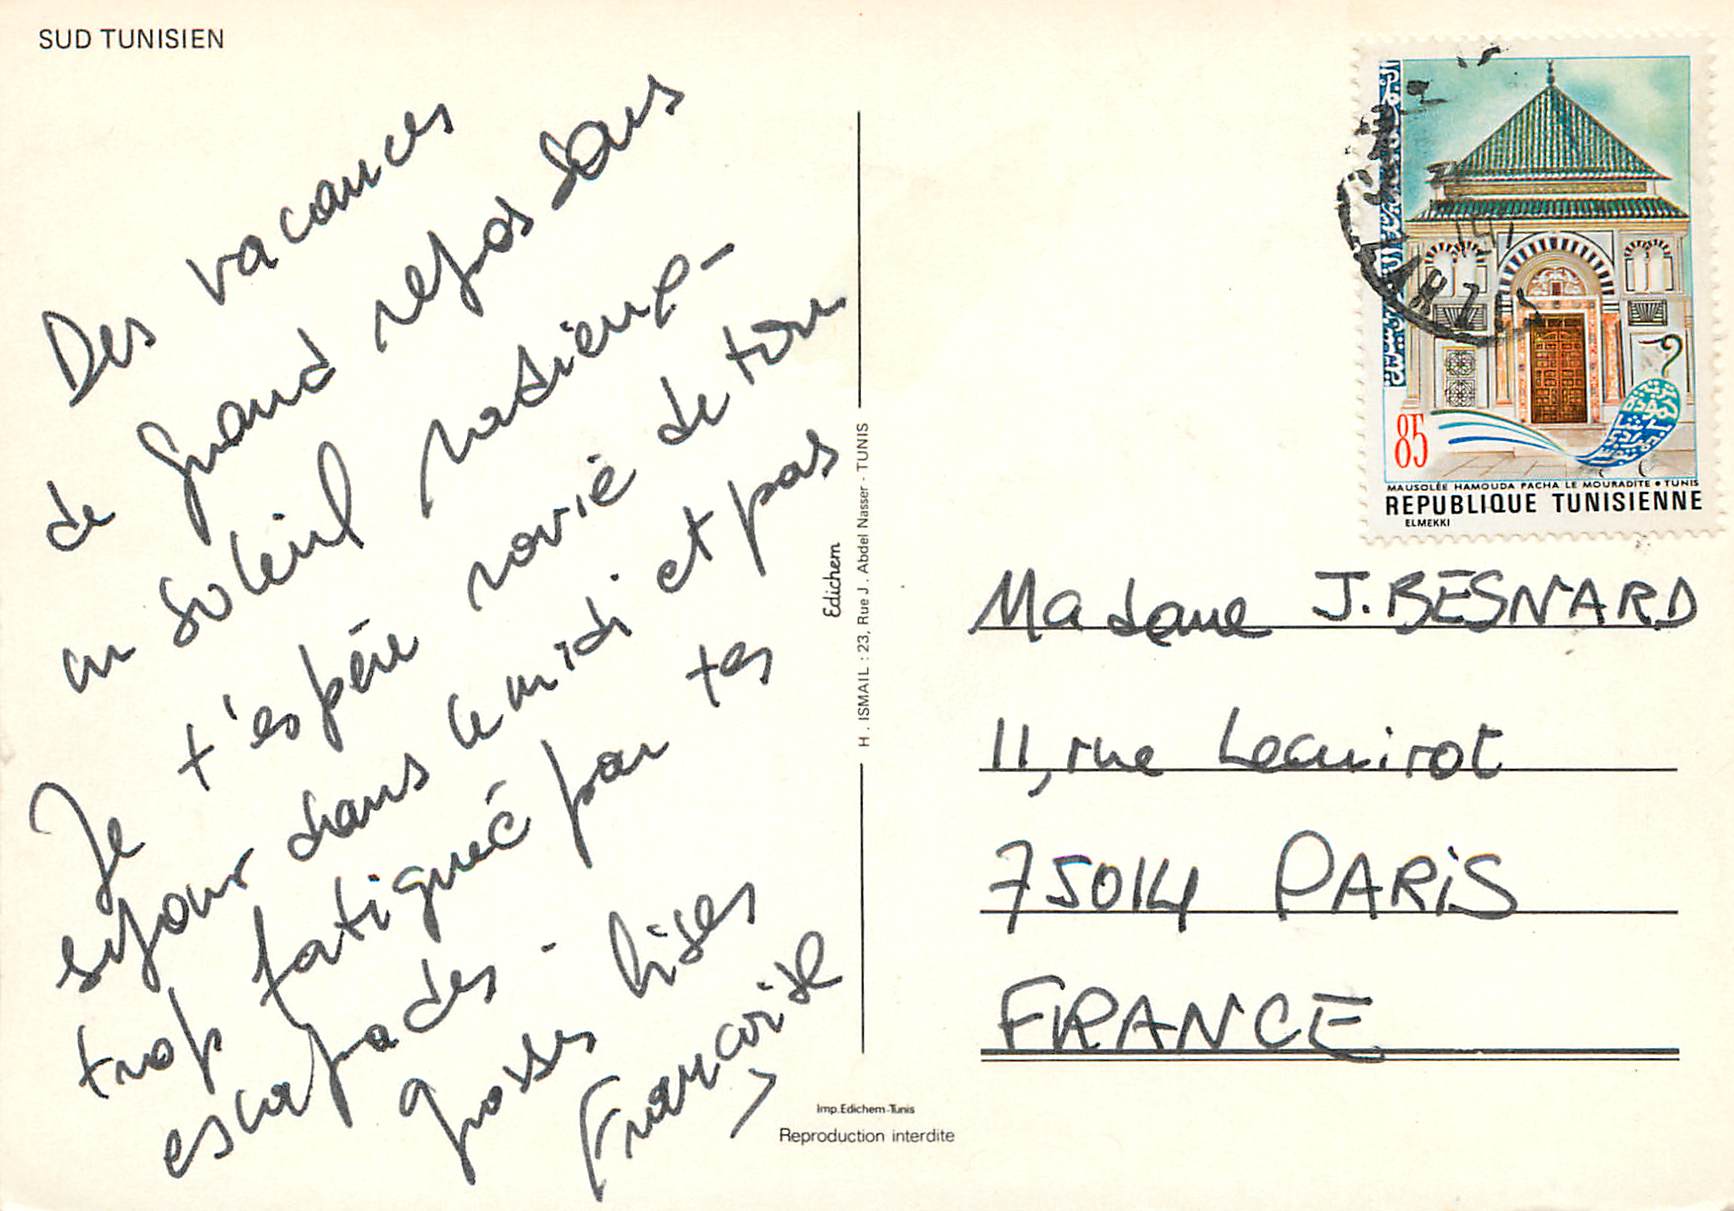 SUD TUNISIEN
Des vacances
de grand repos dans
un soleil radieux -
Je t'espère ravie de ton
séjour dans le midi et pas
trop fatiguée par tes
escapades.
grosses bises
Françoise
Edichem
H. ISMAIL : 23, Rue J. Abdel Nasser - TUNIS
Imp. Edichem-Tunis
Reproduction interdite
85
MAUSOLÉE HAMOUDA PACHA LE MOURADITE • TUNIS
REPUBLIQUE TUNISIENNE
ELMEKKI
Madame J. BESNARD
11, rue Lecuirot
75014 PARIS
FRANCE